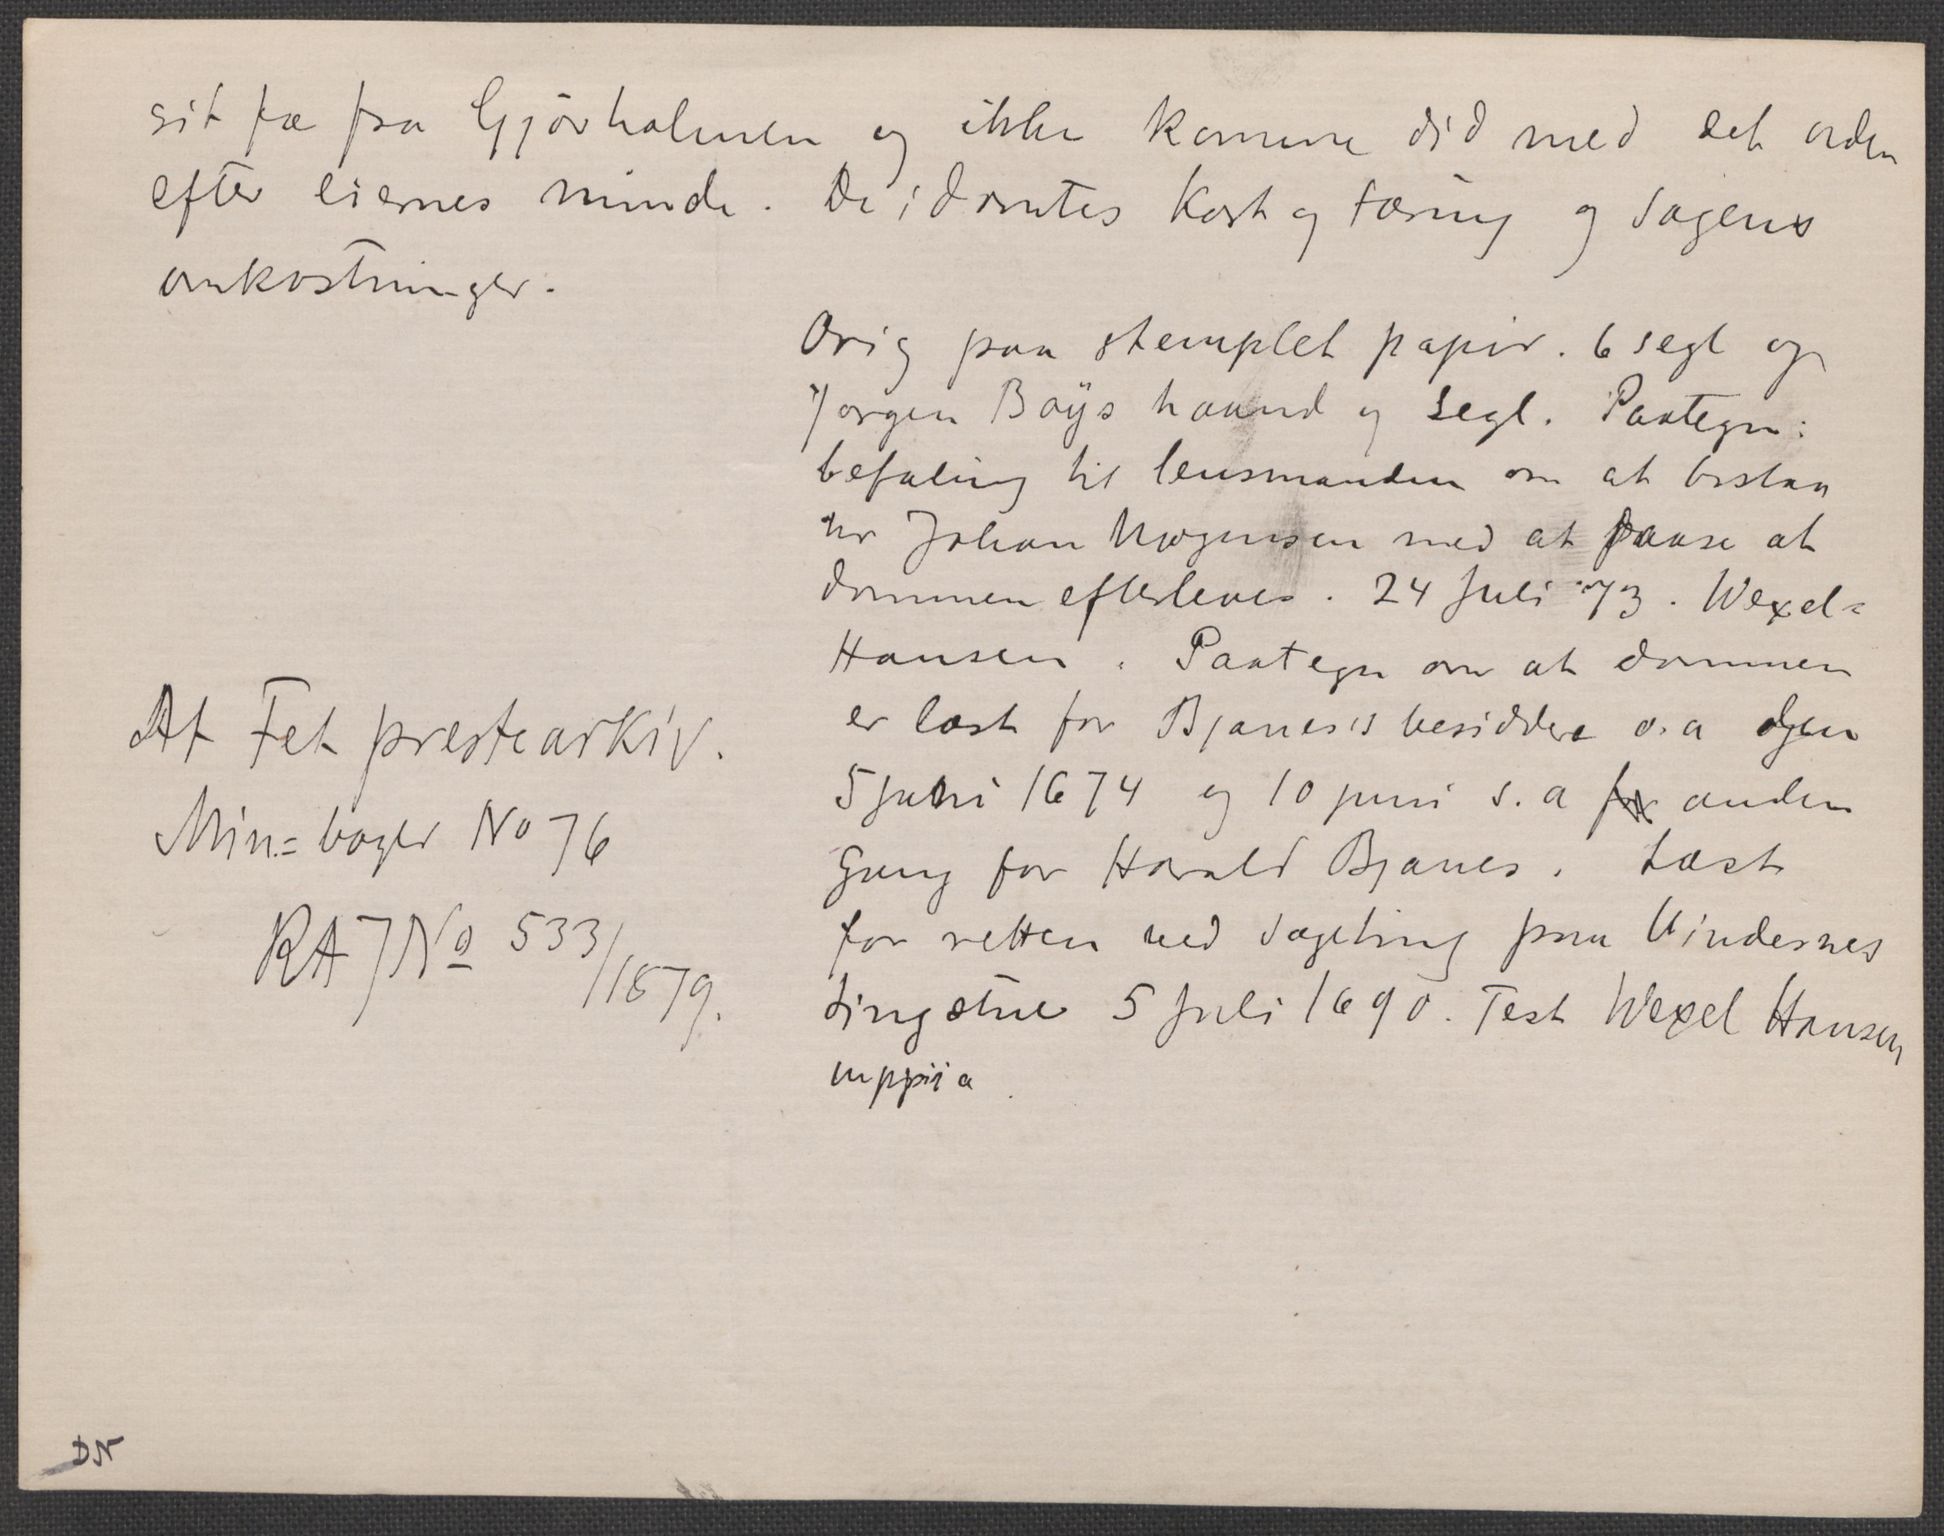 sit fæ fra Gjörholmen og ikke komme did med det uden
efter eiernes minde. De idömtes Kost og tæring og Sagens
omkostninger.
Orig paa stemplet papir. 6 segl og
Jorgen Böÿs haand og Segl. Paategn:
befaling til lensmanden om at bistaa
hr Johan Mogensen med at paase at
dommen efterleves. 24 Juli 73. Wexel=
Hansen. Paategn om at dommen
er læst for Bjanes's besiddere o.a. den
5 juni 1674 og 10 juni s.a. anden
Gang for Harald Bjanes. Læst
for retten ved sageting paa Vindernes
tingstue 5 Juli 1690. Test Wexel Hansen
mppria
Af Fet prestearkiv.
Min.= boger No 76
RA J No 533/1879.
DN